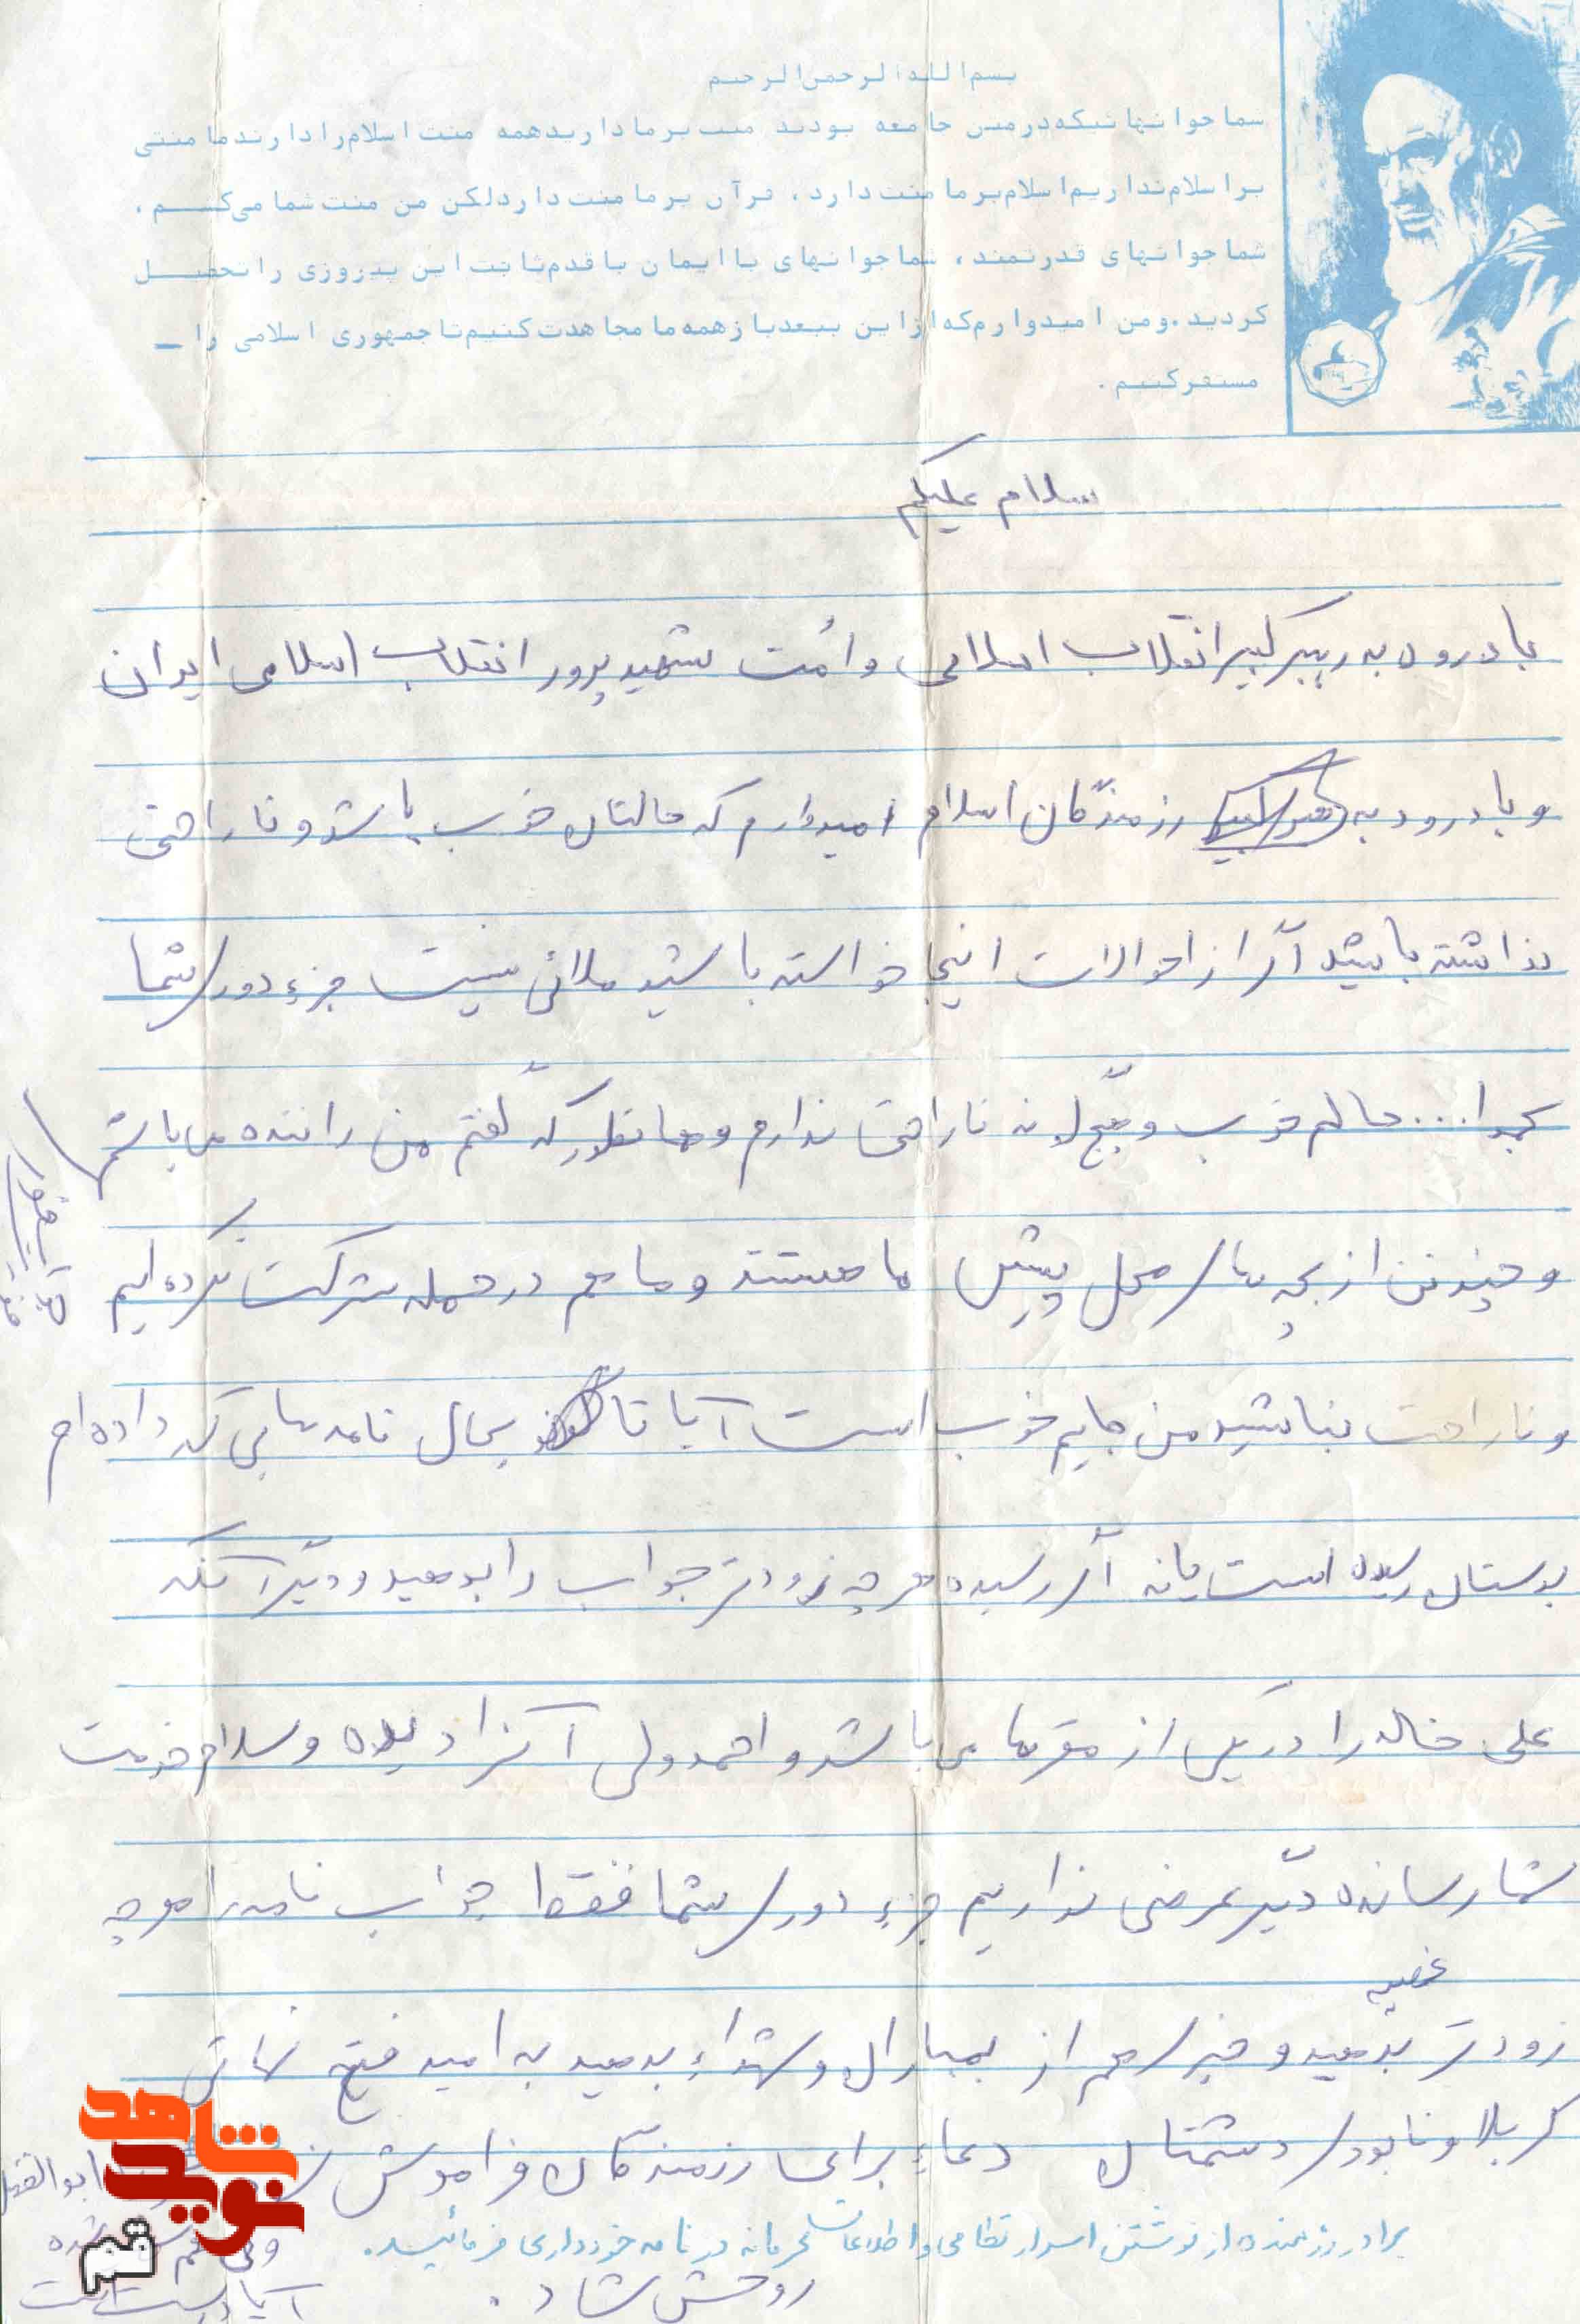 بسم الله الرحمن الرحیم
شما جوانها نیکه در متن جامعه بودید منت بر ما دارید همه منت اسلام را دارند ما منتی
بر اسلام نداریم اسلام بر ما منت دارد ، قرآن بر ما منت دارد لکن من منت شما می‌کشم ،
شما جوانهای قدرتمند ، شما جوانهای با ایمان با قدم ثابت این پیروزی را تحصیل
کردید . و من امیدوارم که از این ببعد باز همه ما مجاهدت کنیم تا جمهوری اسلامی را –
مستقر کنیم .
سلام علیکم
با درود به رهبر کبیر انقلاب اسلامی و اُمت شهید پرور انقلاب اسلامی ایران
و با درود به رزمندگان اسلام امیدوارم که حالتان خوب باشد و ناراحتی
نداشته باشید اگر از احوالات اینجا خواسته باشید ملالی نیست جزء دوری شما
بحمدا... حالم خوب و هیچگونه ناراحتی ندارم و همانطور که گفتم من راننده می باشم
و چند تن از بچه های محل پیش ما هستند و ما هم در حمله شرکت نکرده ایم
و ناراحت نباشید من جایم خوب است آیا تا بحال نامه هایی که داده ام
بدستان رسیده است یا نه اگر رسیده هر چه زودتر جواب را بدهید و دیگر آنکه
علی خاله را در یکی از مقرها می باشد و احمد ولی آنرا دیده و سلام خدمت
شما رسانده دیگر عرضی نداریم جزء دوری شما فقط جواب نامه را هر چه
زودتر بدهید و خبری هم از بمباران و شهداء بدهید به امید فتح نهائی
کربلا و نابودی دشمنان دعاء برای رزمندگان فراموش
ابوالفضل
شده
برادر رزمنده از نوشتن اسرار نظامی و اطلاعات محرمانه در نامه خودداری فرمائید.
روحش شاد .
آیا درست است
شاهد
نوید
قم